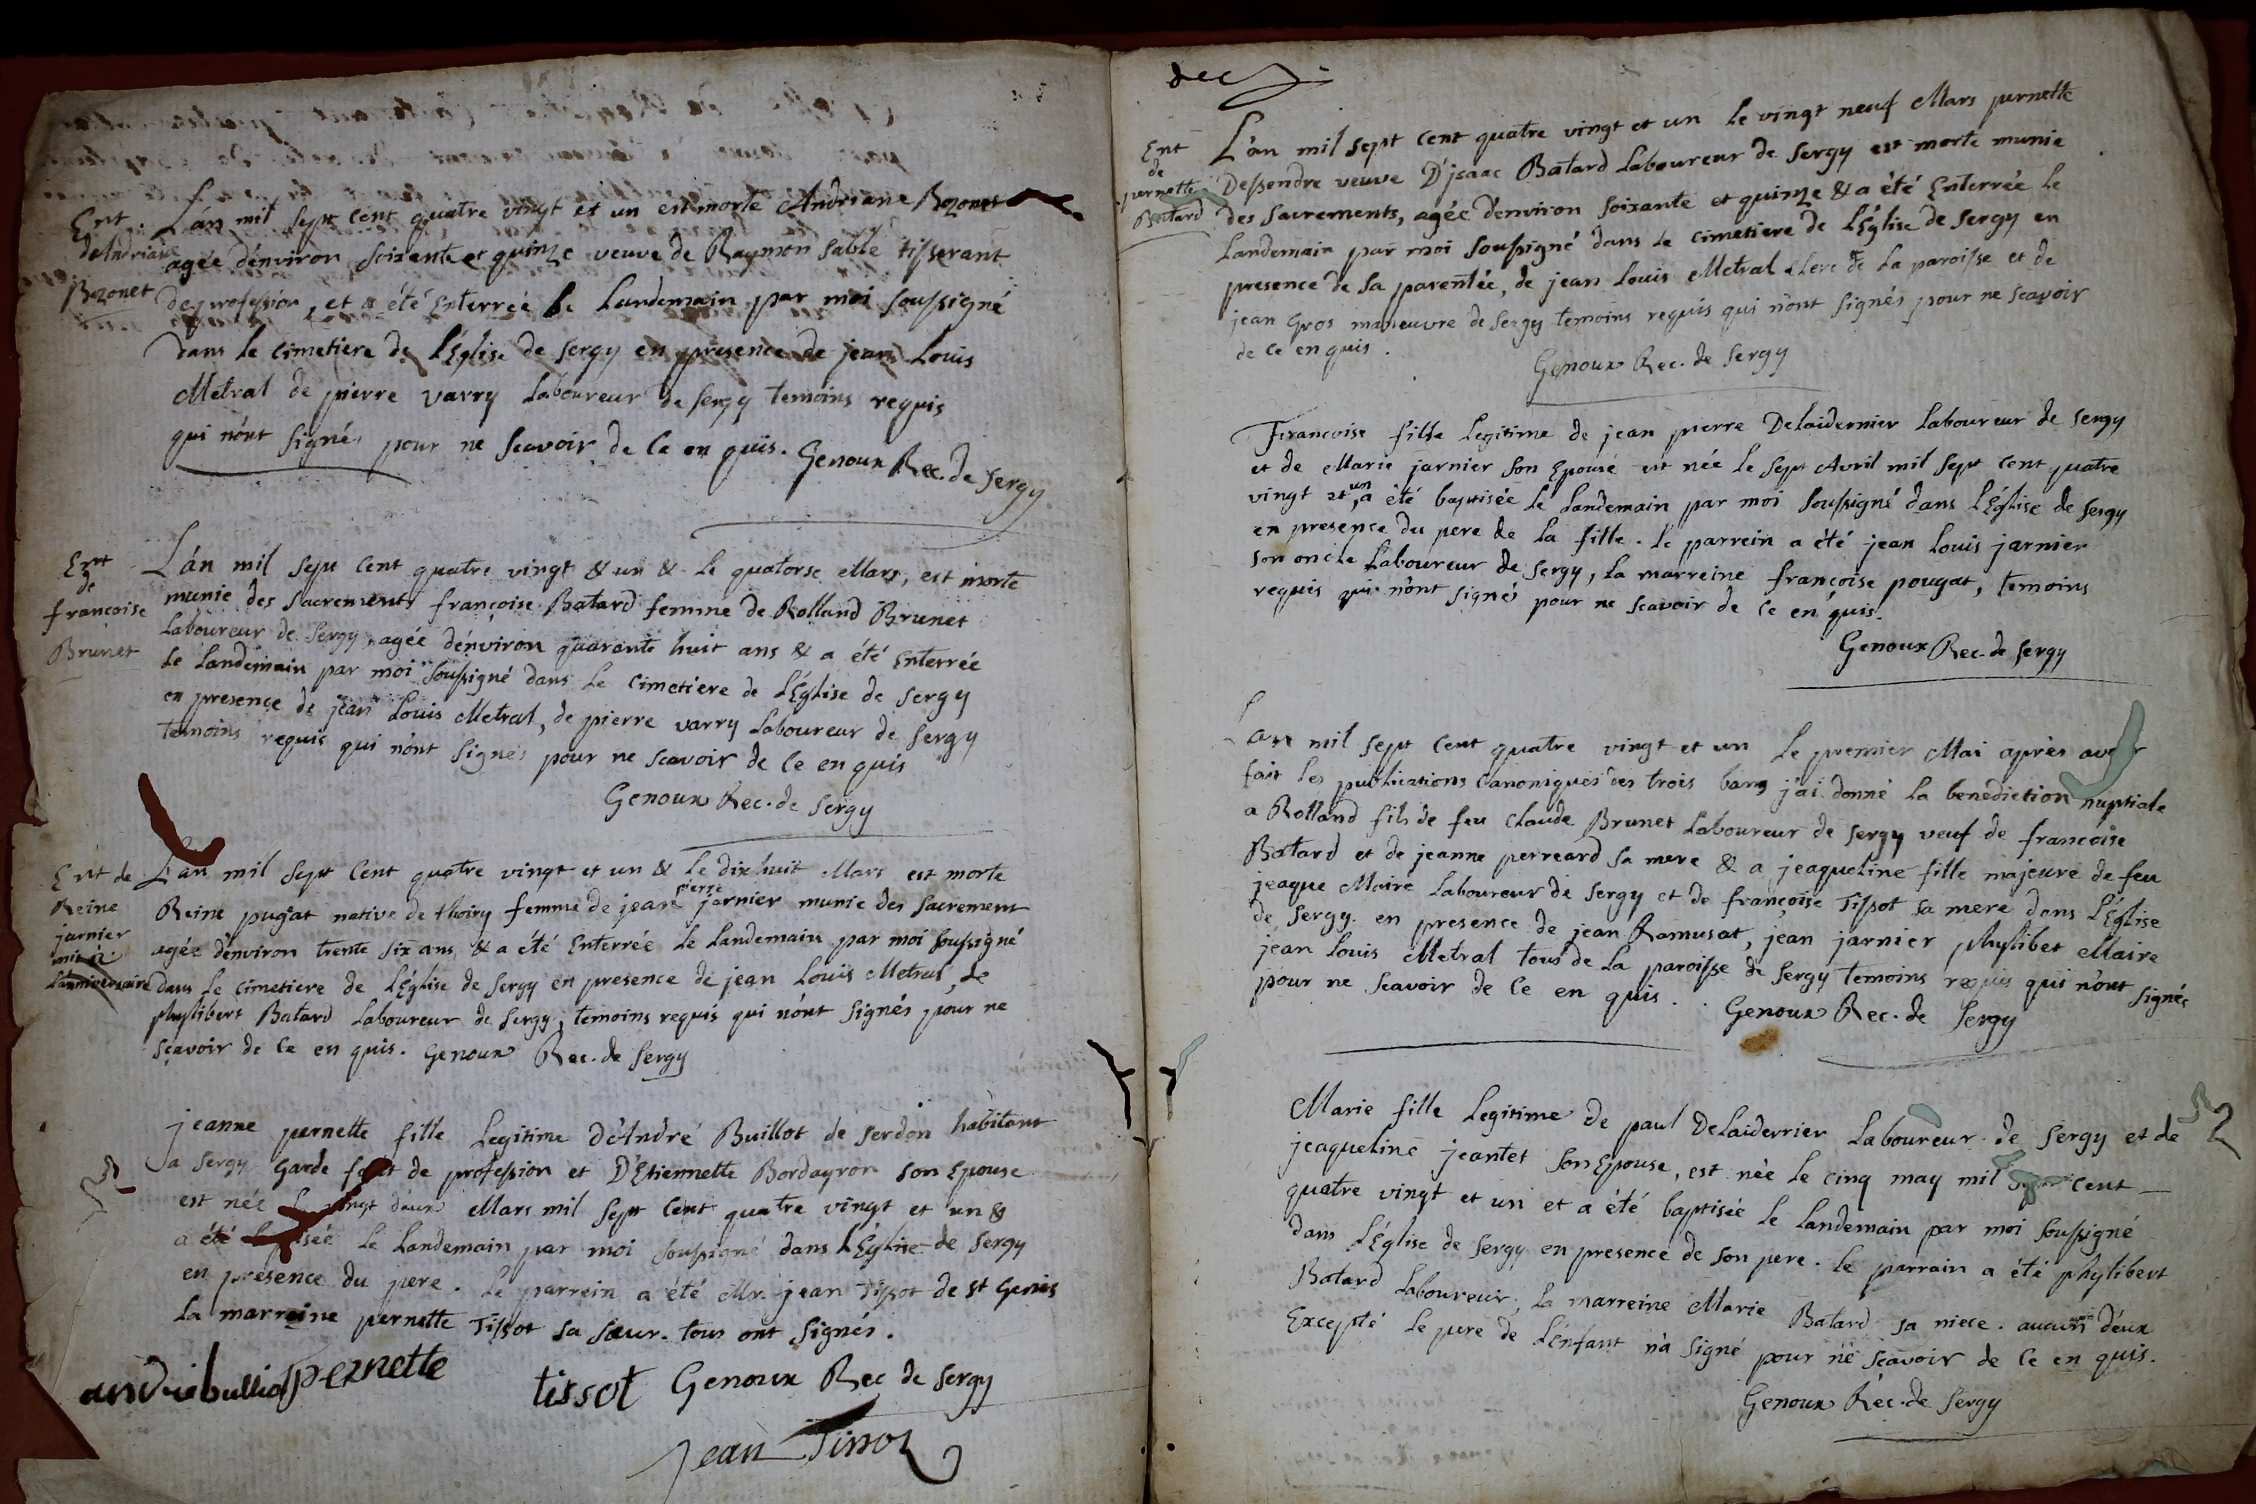 Ent
dAndriane
Bozonet
L'an mil sept cent quatre vingt et un est morte Andriane Bozonet
agée d'environ soixante et quinze veuve de Raymon Sable tisserant
de profession, et a été Enterrée le Landemain par moi soussigné
dans le cimetiere de l'Église de Sergy en presence de jean Louis
Metral de pierre varry Laboureur de Sergy temoins requis
qui n'ont signés pour ne scavoir de ce en quis. Genoux Rec. de Sergy
Ent
de
françoise
Brunet
L'an mil sept cent quatre vingt & un & le quatorse Mars, est morte
munie des Sacrements françoise Batard femme de Rolland Brunet
Laboureur de Sergy agée d'environ quarante huit ans & a été Enterrée
le landemain par moi soussigné dans le cimetiere de l'Église de Sergy
en presence de jean Louis Metral, de pierre varry Laboureur de Sergy
temoins requis qui n'ont signés pour ne scavoir de ce en quis
Genoux Rec. de Sergy
Ent de
Reine
jarnier
L'anniversaire
L'an mil sept cent quatre vingt et un & le dix huit Mars est morte
Reine pugat native de thoiry femme de jean pierre jarnier munie des Sacrement
agée d'environ trente six ans & a été Enterrée le landemain par moi soussigné
dans le cimetiere de l'Église de Sergy en presence de jean Louis Metral, de
phylibert Batard Laboureur de Sergy, temoins requis qui n'ont signés pour ne
sçavoir de ce en quis. Genoux Rec. de Sergy
jeanne pernette fille Legitime d'André Buillot de serdon habitant
a Sergy Garde de profession et D'Etiennette Bordayron son Epouse
est née vingt deux Mars mil sept cent quatre vingt et un &
a été le landemain par moi soussigné dans l'Église de Sergy
en presence du pere. le parrein a été Mr. jean Tissot de st Genis
la marreine pernette Tissot sa sœur. tous ont signés.
andrebulliod pernette tissot Genoux Rec de Sergy
jean Tissot
Ent
de
pernette
Batard
L'an mil sept cent quatre vingt et un le vingt neuf Mars pernette
Dessendre veuve D'isaac Batard Laboureur de Sergy est morte munie
des Sacrements, agée d'environ soixante et quinze & a été Enterrée le
Landemain par moi soussigné dans le cimetiere de l'Église de Sergy en
presence de sa parentée, de jean Louis Metral clerc de la paroisse et de
jean Gros maneuvre de Sergy temoins requis qui n'ont signés pour ne scavoir
de ce en quis.
Genoux Rec. de Sergy
Françoise fille Legitime de jean pierre Delaidernier Laboureur de Sergy
et de Marie jarnier son Epouse est née le sept Avril mil sept cent quatre
vingt et un a été baptisée le landemain par moi soussigné dans l'Église de Sergy
en presence du pere de la fille. le parrein a été jean Louis jarnier
son oncle Laboureur de Sergy, la marreine françoise pougat, temoins
requis qui n'ont signés pour ne scavoir de ce en quis.
Genoux Rec. de Sergy
L'an mil sept cent quatre vingt et un le premier Mai après avoir
fait les publications Canoniques des trois bans j'ai donné la benediction nuptiale
a Rolland fils de feu Claude Brunet Laboureur de Sergy veuf de françoise
Batard et de jeanne perreard sa mere & a jeaqueline fille majeure de feu
jeaque Maire Laboureur de Sergy et de françoise Tissot sa mere dans l'Église
de Sergy. en presence de jean Ramusat, jean jarnier phylibet Maire
jean Louis Metral tous de la paroisse de Sergy temoins requis qui n'ont signés
pour ne scavoir de ce en quis. Genoux Rec. de Sergy
Marie fille Legitime de paul Delaiderrier Laboureur de Sergy et de
jeaqueline jeantet son Epouse, est née le cinq may mil sept cent
quatre vingt et un et a été baptisée le landemain par moi soussigné
dans l'Église de Sergy en presence de son pere. le parrain a été phylibert
Batard Laboureur, la marreine Marie Batard sa niece. aucun d'eux
Excepté le pere de l'Enfant n'a signé pour ne scavoir de ce en quis.
Genoux Rec. de Sergy